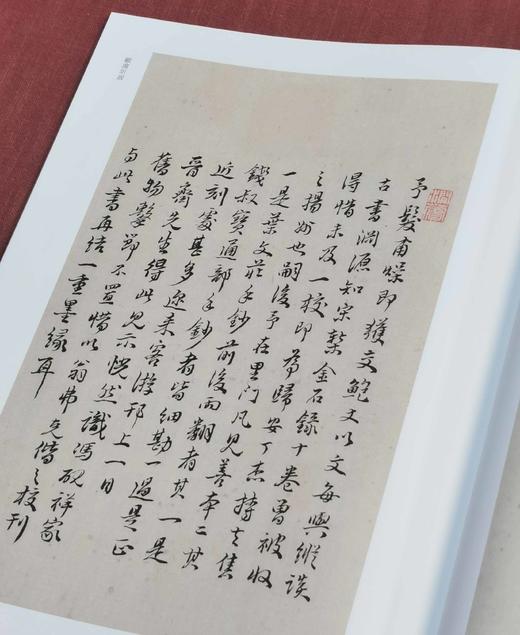 予髮甫燥即獲交鮑丈以文每與縱談
古書淵源知宋槧金石錄十卷曾被收
得惜未及一校即為歸安丁杰攜去焦
之揚州也嗣後予在里門凡見善本二其
一是葉文莊手鈔前後兩翻者其一是
錢叔寶通部手鈔者皆細勘一過是正
近刻處甚多迩来客游邗上一日
晉齋先生得此見示恍然識馮硯祥家
舊物擊節不置惜以翁弗克借之校刊
與此書再結一重墨緣耳
顧廣圻跋